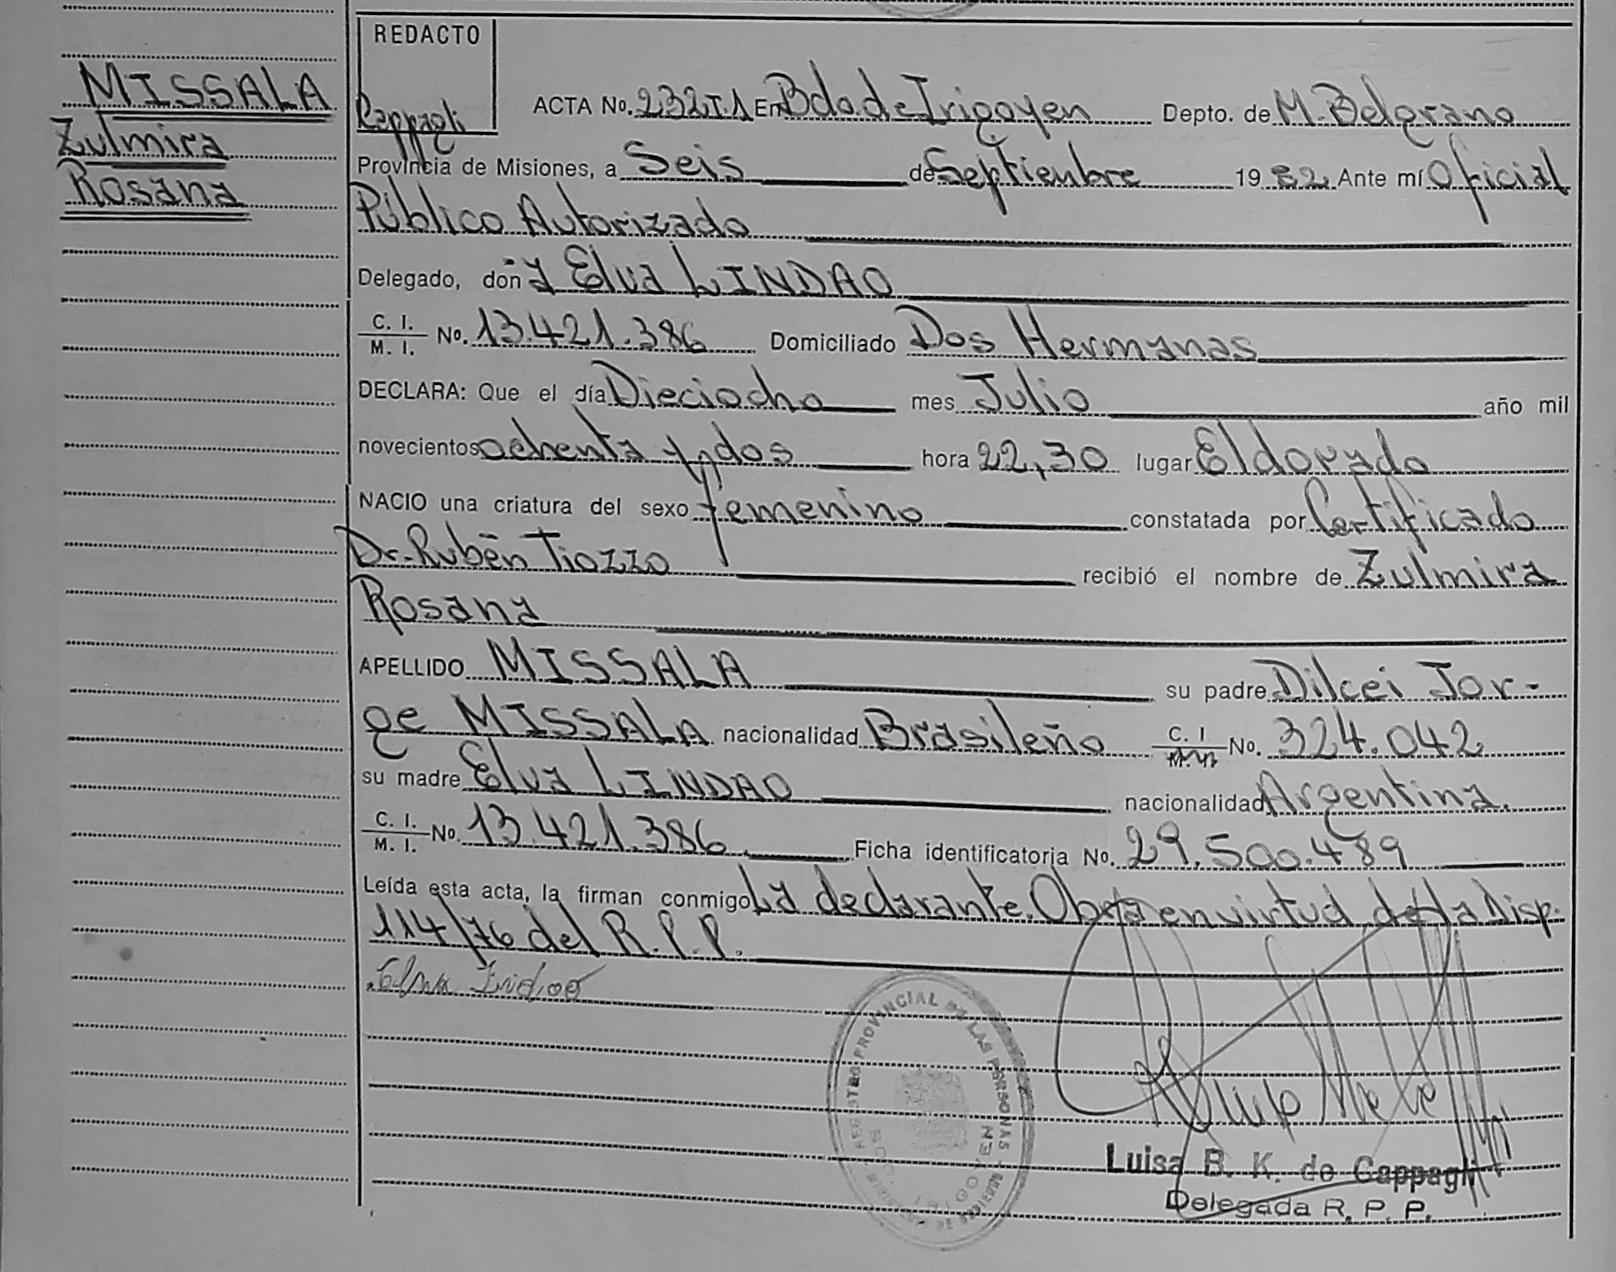 MISSALA
Zulmira
Rosana
REDACTO
Cappagli
ACTA No. 232T1 En Bdo de Irigoyen Depto. de M. Belgrano
Provincia de Misiones, a Seis de Septiembre 1982 Ante mí Oficial
Público Autorizado
Delegado, don y Elva LINDAO
C. I. / M. I. No. 13.421.386 Domiciliado Dos Hermanas
DECLARA: Que el día Dieciocho mes Julio año mil
novecientos ochenta y dos hora 22,30 lugar Eldorado
NACIO una criatura del sexo femenino constatada por Certificado
Dr. Rubén Tiozzo recibió el nombre de Zulmira
Rosana
APELLIDO MISSALA su padre Dilcei Jor-
ge MISSALA nacionalidad Brasileño C. I No. 324.042
su madre Elva LINDAO nacionalidad Argentina.
C. I. / M. I. No. 13.421.386 Ficha identificatoria No. 29.500.489
Leída esta acta, la firman conmigo La declarante. en virtud de la Disp.
114/76 del R.P.P.
REGISTRO PROVINCIAL DE LAS PERSONAS
Luisa B. K. de Cappagli
Delegada R. P. P.